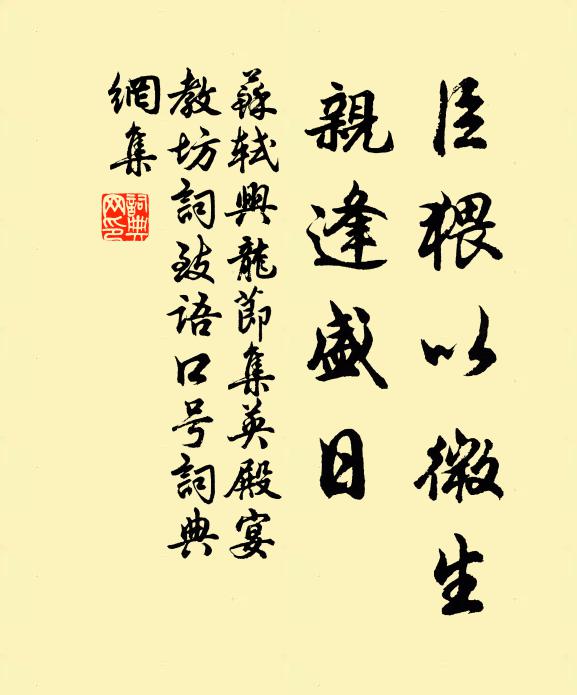 臣猥以微生
親逢盛日
蘇軾興龍節集英殿宴
教坊詞致语口号詞典
網集
詞典网印